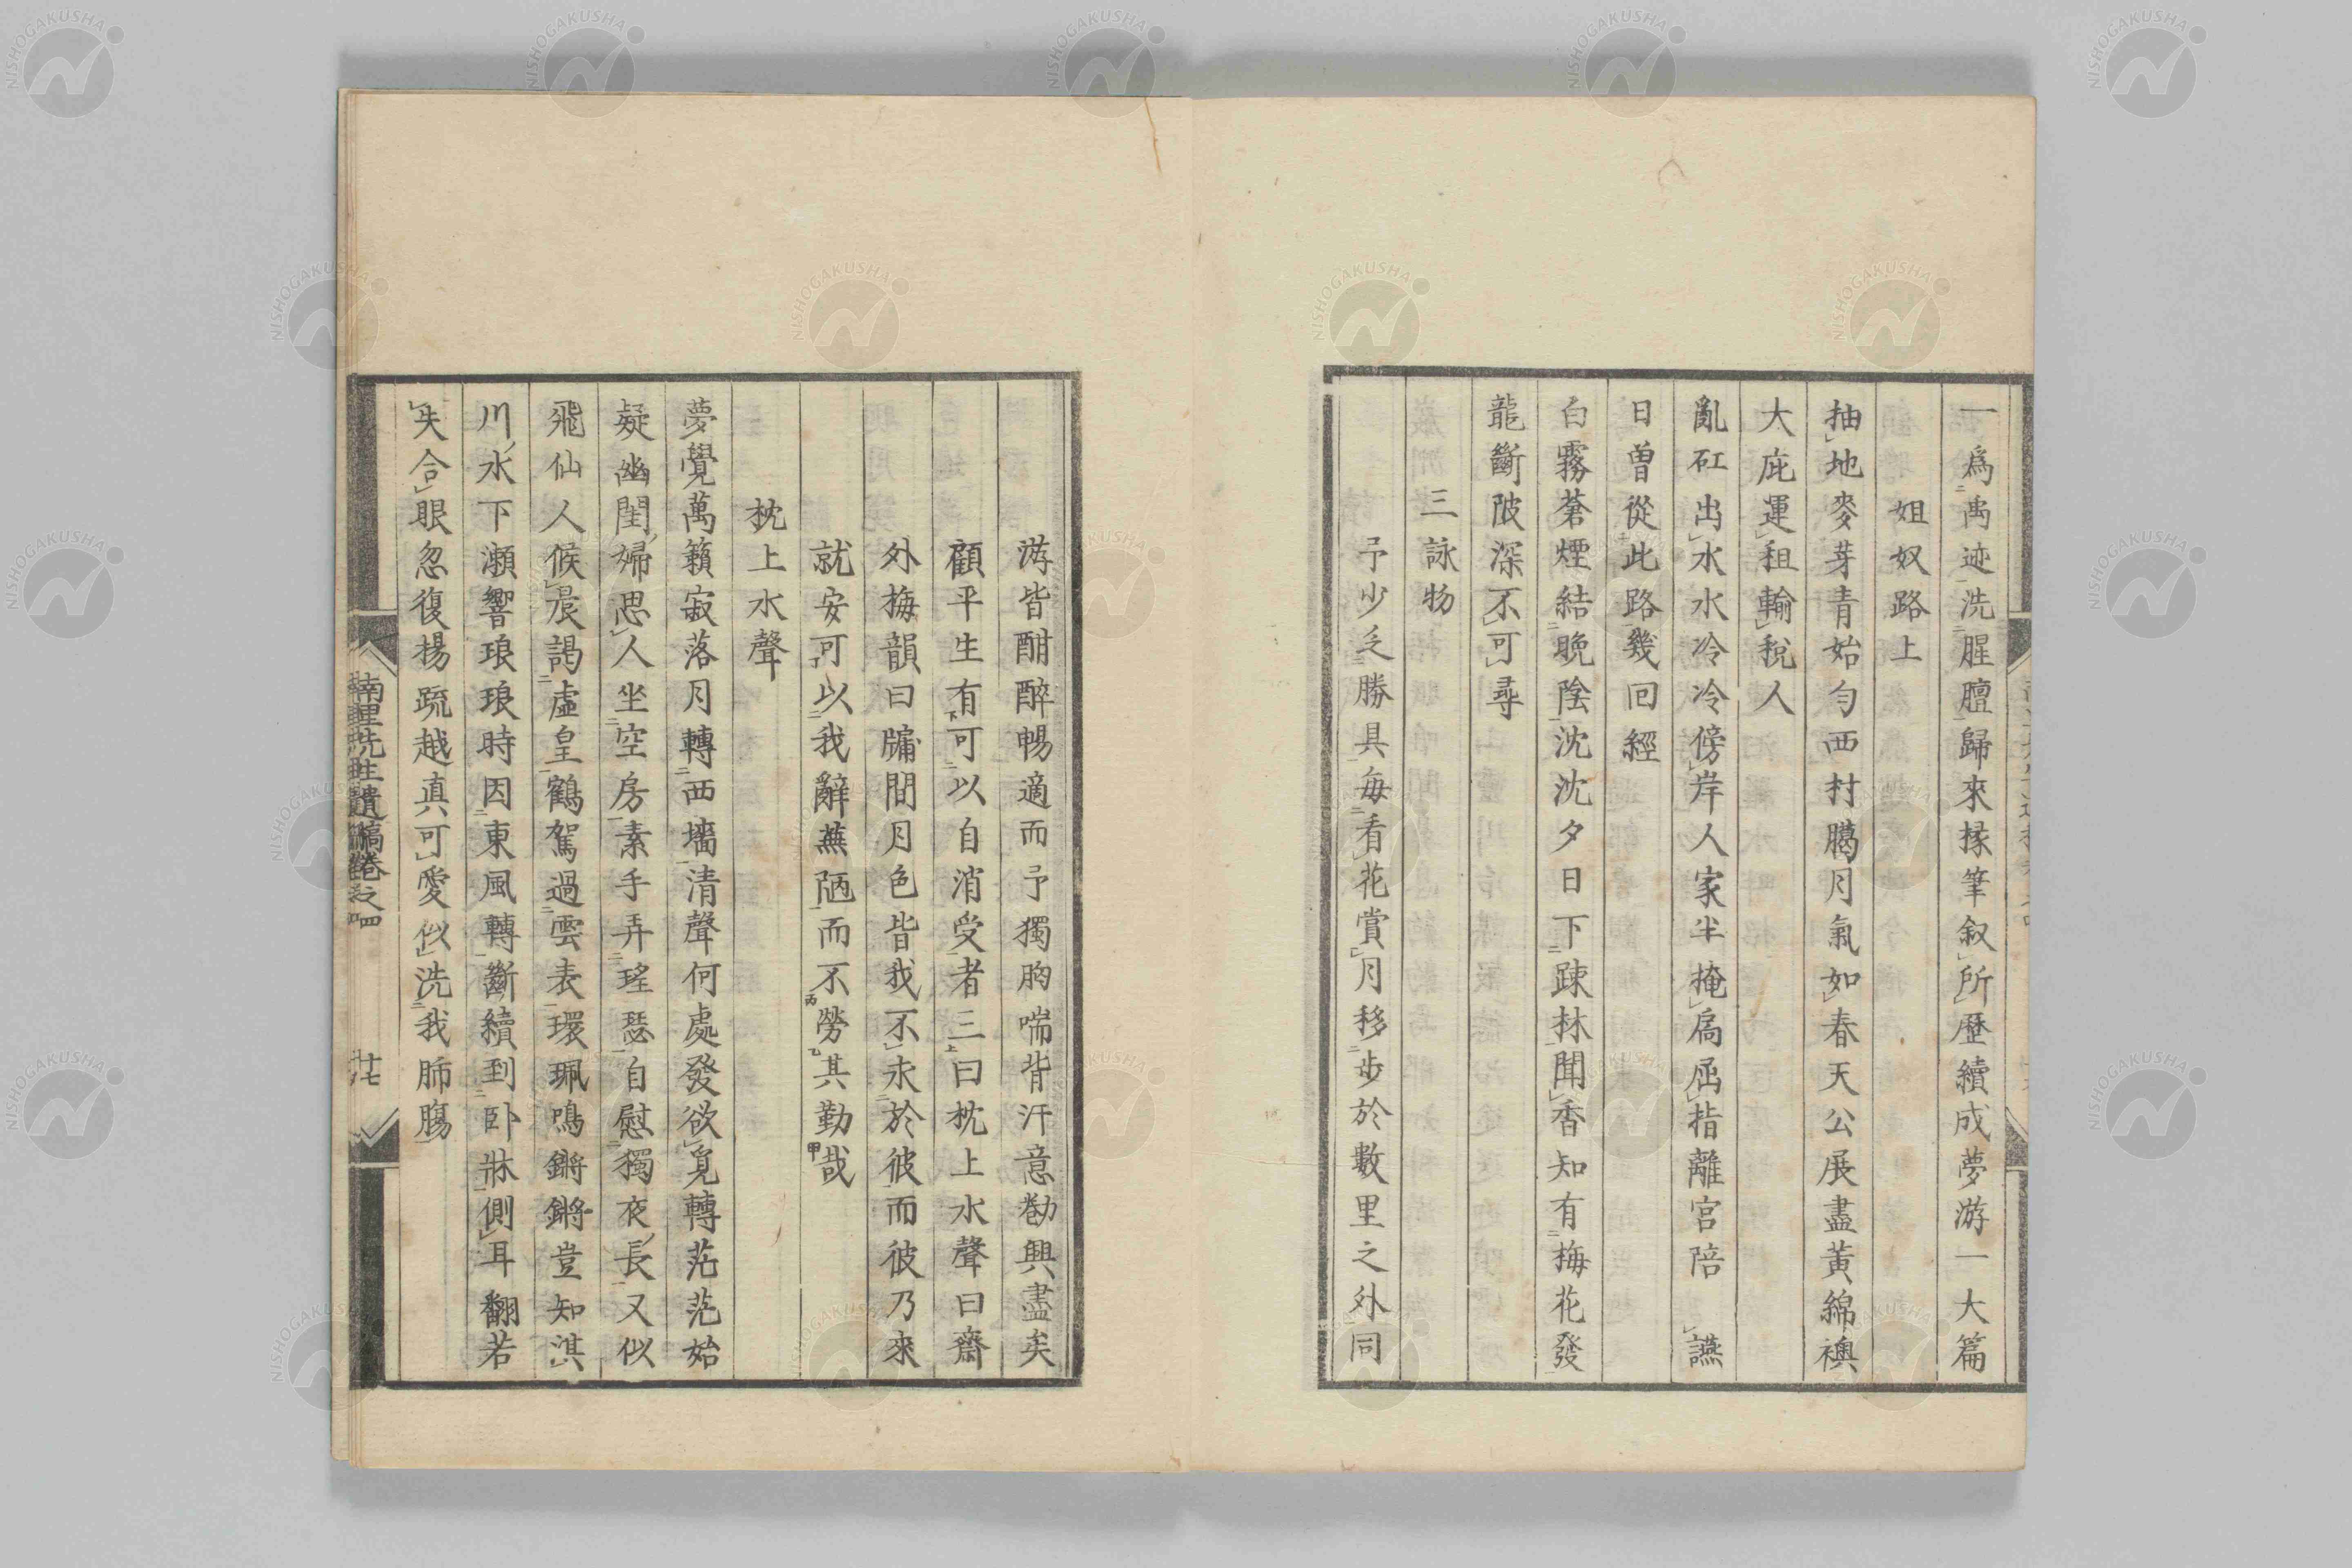 一爲禹迹洗腥膻歸來掾筆叙所歷續成夢游一大篇
姐奴路上
抽地麥芽青始勻西村臈月氣如春天公展盡黃綿襖
大庇運租輸稅人
亂矼出水水冷冷傍岸人家半掩扃屈指離宮陪讌
日曽從此路幾回經
白霧蒼煙結晚陰沈沈夕日下疎林聞香知有梅花發
龍斷陂深不可尋
三詠物
予少乏勝具每看花賞月移步於數里之外同
游皆酣醉暢適而予獨胸喘背汗意勌興盡矣
顧平生有可以自消受者三曰枕上水聲曰齋
外梅韻曰牖間月色皆我不求於彼而彼乃來
就安可以我辭蕪陋而不勞其勤哉
枕上水聲
夢覺萬籟寂落月轉西墻清聲何處發欲覓轉茫茫始
疑幽閨婦思人坐空房素手弄瑤瑟自慰獨夜長又似
飛仙人候晨謁虛皇鶴駕過雲表環珮鳴鏘鏘豈知淇
川水下瀨響琅琅時因東風轉斷續到卧牀側耳翻若
失合眼忽復揚疏越眞可愛似洗我肺膓
楠里先生遺稿卷之四
廿七
NISHOGAKUSHA